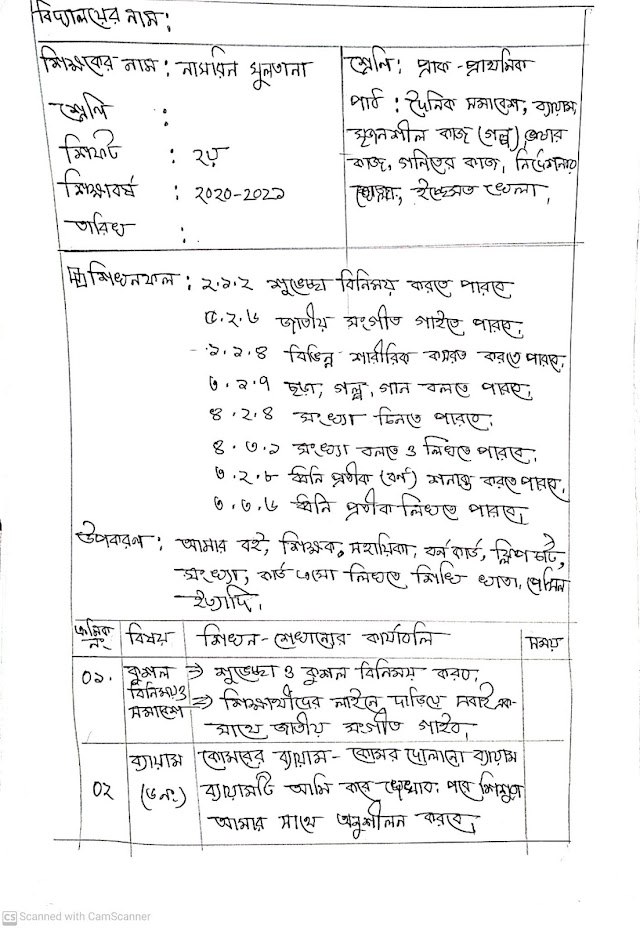 বিদ্যালয়ের নাম:
শিক্ষকের নাম: নাসরিন সুলতানা
শ্রেণি :
শিফট : ২য়
শিক্ষাবর্ষ : ২০২০-২০২১
তারিখ :
শ্রেণি: প্রাক-প্রাথমিক
পাঠ: দৈনিক সমাবেশ, ব্যায়াম,
সৃজনশীল কাজ (গল্প), ভাষার
কাজ, গনিতের কাজ, নির্দেশনার
খেলা, ইচ্ছেমত খেলা,
শিখনফল: ২.১.২ শুভেচ্ছা বিনিময় করতে পারবে
৫.২.৬ জাতীয় সংগীত গাইতে পারবে,
১.২.৪ বিভিন্ন শারীরিক কসরত করতে পারবে,
৩.২.৭ ছড়া, গল্প, গান বলতে পারবে,
৪.২.৪ সংখ্যা চিনতে পারবে,
৪.৩.১ সংখ্যা বলতে ও লিখতে পারবে,
৩.২.৮ ধ্বনি প্রতীক (বর্ণ) শনাক্ত করতে পারবে,
৩.৩.৬ ধ্বনি প্রতীক লিখতে পারবে,
উপকরণ: আমার বই, শিক্ষক সহায়িকা, বর্ন কার্ড, ফ্লিপ চার্ট,
সংখ্যা, কার্ড এসো লিখতে শিখি খাতা, পেন্সিল
ইত্যাদি,
ক্রমিক নং বিষয় শিখন-শেখানোর কার্যাবলি সময়
০১. কুশল ⇒ শুভেচ্ছা ও কুশল বিনিময় করব,
বিনিময় ও ⇒ শিক্ষার্থীদের লাইনে দাড়িয়ে সবাই এক-
সমাবেশ সাথে জাতীয় সংগীত গাইব,
ব্যায়াম কোমরের ব্যায়াম- কোমর দোলানো ব্যায়াম
০২ (৬ নং) ব্যায়ামটি আমি করে দেখাব. পরে শিশুরা
আমার সাথে অনুশীলন করবে,
CS Scanned with CamScanner